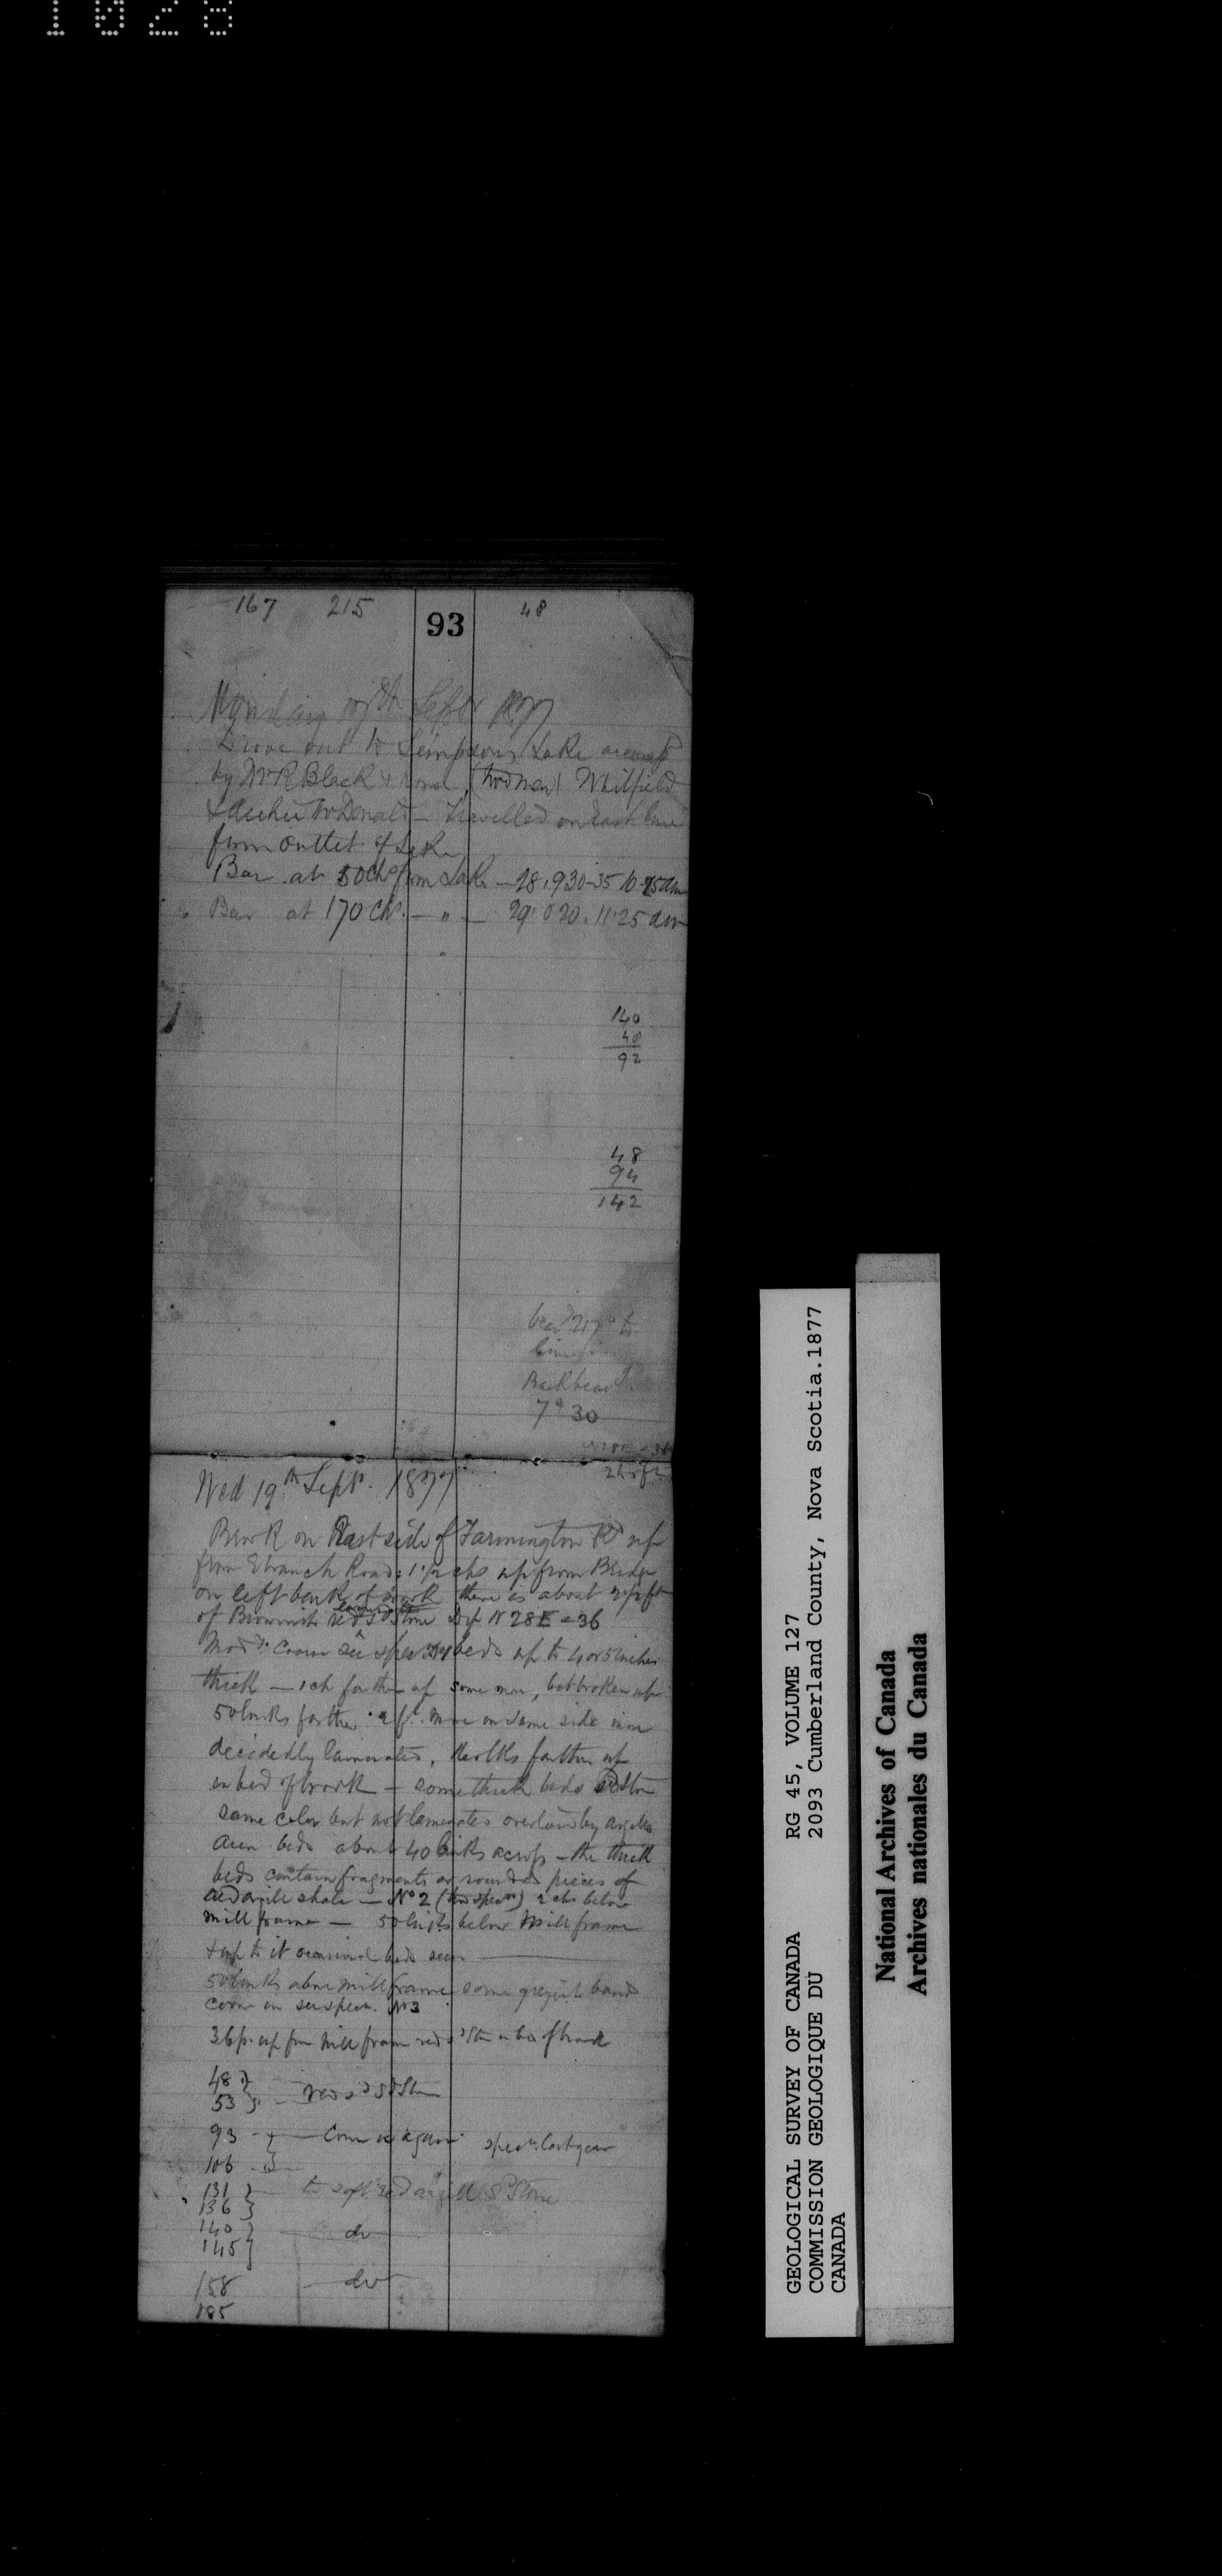 1028
167 215 93 48
Monday 17th Septr 1877
Drove out to Simpsons Lake accomp
by Mr R Black & horse (two men) Whitfield
& Archie McDonald — Travelled on East line
from outlet of Lake
Bar at 50 chs from Lake — 28.930-35 10.25 am
Bar at 170 chs — " — 29.020. 11.25 am
140
48
92
48
94
142
bear 217° to
Back bear
7° 30
N28E <36
Wed 19th Septr. 1877
Brook on East side of Farmington Rd up
from E branch Road: 1 1/2 chs up from Bridge
on left bank of brook there is about 2 1/2 ft
of Brownish red Stone Dip N 28 E < 36
beds up to 4 or 5 inches
thick — 1 ch farther up some more, but broken up
50 links farther 2 ft. more on same side more
decidedly laminated, farther up
in bed of brook — some thick beds
same color but not laminated overlaid by argills
aren beds about 40 links across — the thick
beds contain fragments or rounded pieces of
red argill shale — No 2 2 chs below
mill frame — 50 links below Mill frame
& up to it occasional beds seen
50 links above mill frame some greyish bands
come in see specn. No 3
36 p. up from Mill frame red Stn in bed of brook
48 }
53 } — red
93 — Come in again specn. last year
106
131 } to soft red argill S Stone
136 }
140 } do
145 }
158 do
GEOLOGICAL SURVEY OF CANADA RG 45, VOLUME 127
COMMISSION GEOLOGIQUE DU 2093 Cumberland County, Nova Scotia.1877
CANADA
National Archives of Canada
Archives nationales du Canada